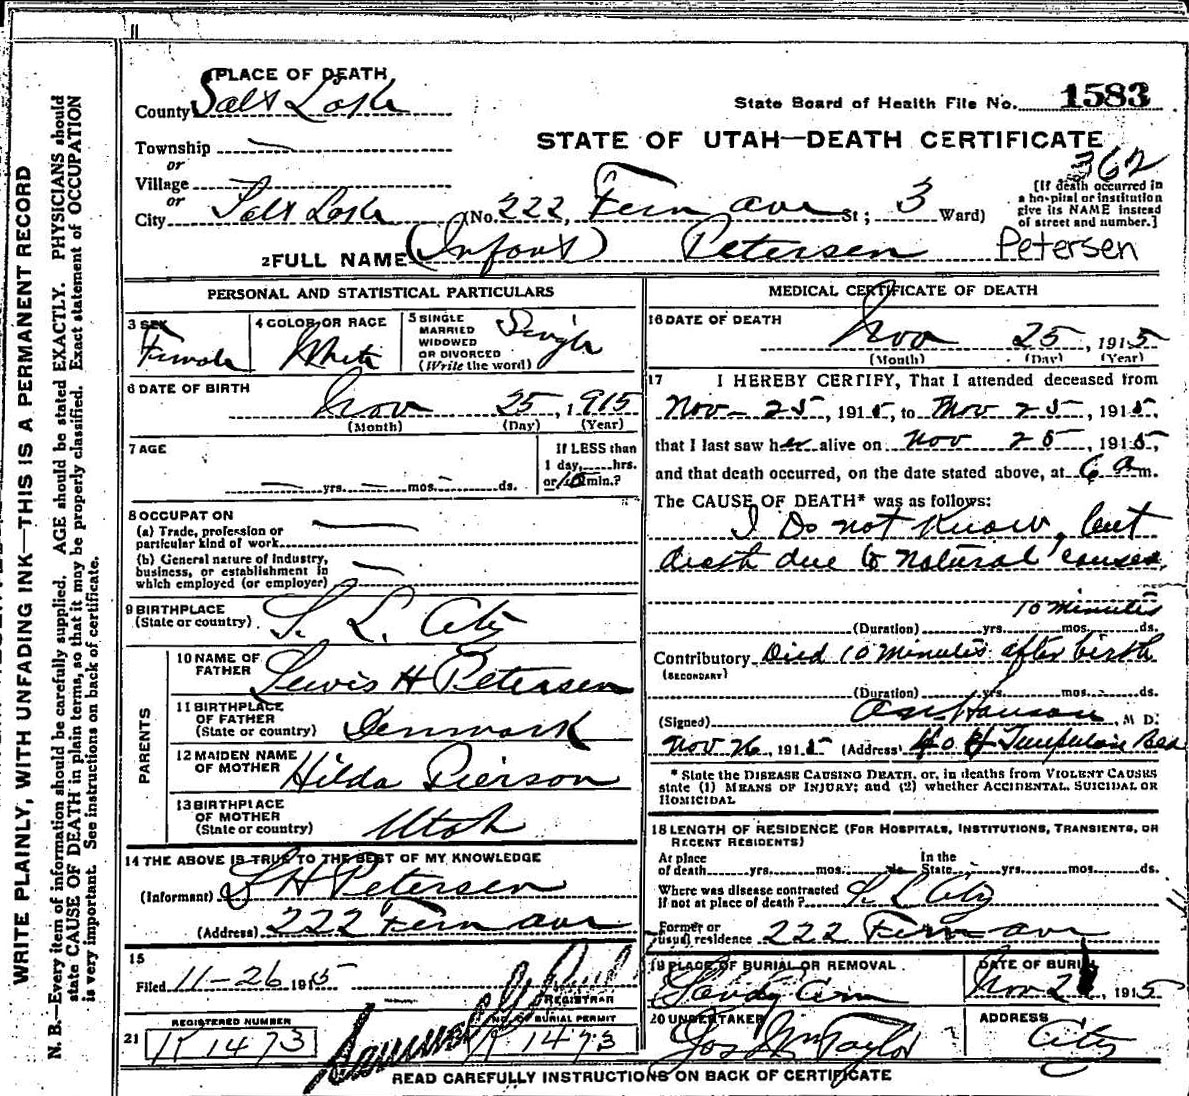 WRITE PLAINLY, WITH UNFADING INK—THIS IS A PERMANENT RECORD
N. B.—Every item of information should be carefully supplied. AGE should be stated EXACTLY. PHYSICIANS should
state CAUSE OF DEATH in plain terms, so that it may be properly classified. Exact statement of OCCUPATION
is very important. See instructions on back of certificate.
1 PLACE OF DEATH
County Salt Lake
State Board of Health File No. 1583
STATE OF UTAH—DEATH CERTIFICATE
362
Township
or
Village
or
City Salt Lake (No. 222, Fern ave St; 3 Ward)
[If death occurred in
a hospital or institution
give its NAME instead
of street and number.]
2 FULL NAME (Infant) Petersen Petersen
PERSONAL AND STATISTICAL PARTICULARS
3 SEX Female
4 COLOR OR RACE White
5 SINGLE
MARRIED
WIDOWED
OR DIVORCED
(Write the word) Single
6 DATE OF BIRTH
Nov 25, 1915
(Month) (Day) (Year)
7 AGE
yrs. mos. ds.
If LESS than
1 day, hrs.
or 10 min.?
8 OCCUPATION
(a) Trade, profession or
particular kind of work
(b) General nature of industry,
business, or establishment in
which employed (or employer)
9 BIRTHPLACE
(State or country) S. L. City
PARENTS
10 NAME OF
FATHER Lewis H Petersen
11 BIRTHPLACE
OF FATHER
(State or country) Denmark
12 MAIDEN NAME
OF MOTHER Hilda Pierson
13 BIRTHPLACE
OF MOTHER
(State or country) Utah
14 THE ABOVE IS TRUE TO THE BEST OF MY KNOWLEDGE
(Informant) L H Petersen
(Address) 222 Fern ave
15
Filed 11-26 1915
REGISTRAR
REGISTERED NUMBER
NO. OF BURIAL PERMIT
21 R 1473 R 1473
MEDICAL CERTIFICATE OF DEATH
16 DATE OF DEATH
Nov 25, 1915
(Month) (Day) (Year)
17 I HEREBY CERTIFY, That I attended deceased from
Nov - 25, 1915, to Nov 25, 1915,
that I last saw her alive on Nov 25, 1915,
and that death occurred, on the date stated above, at 6 a m.
The CAUSE OF DEATH* was as follows:
I Do not Know, but
death due to natural causes,
10 minutes
(Duration) yrs. mos. ds.
Contributory Died 10 minutes after birth
(SECONDARY)
(Duration) yrs. mos. ds.
(Signed) Hanson, M D.
Nov 26, 1915 (Address)
* State the DISEASE CAUSING DEATH, or, in deaths from VIOLENT CAUSES
state (1) MEANS OF INJURY; and (2) whether ACCIDENTAL, SUICIDAL OR
HOMICIDAL
18 LENGTH OF RESIDENCE (FOR HOSPITALS, INSTITUTIONS, TRANSIENTS, OR
RECENT RESIDENTS)
At place
of death yrs. mos. ds.
In the
State yrs. mos. ds.
Where was disease contracted
If not at place of death? S. L City
Former or
usual residence 222 Fern ave
19 PLACE OF BURIAL OR REMOVAL
Sandy Cem
DATE OF BURIAL
Nov 2 , 1915
20 UNDERTAKER
Jos Wm Taylor
ADDRESS
City
READ CAREFULLY INSTRUCTIONS ON BACK OF CERTIFICATE